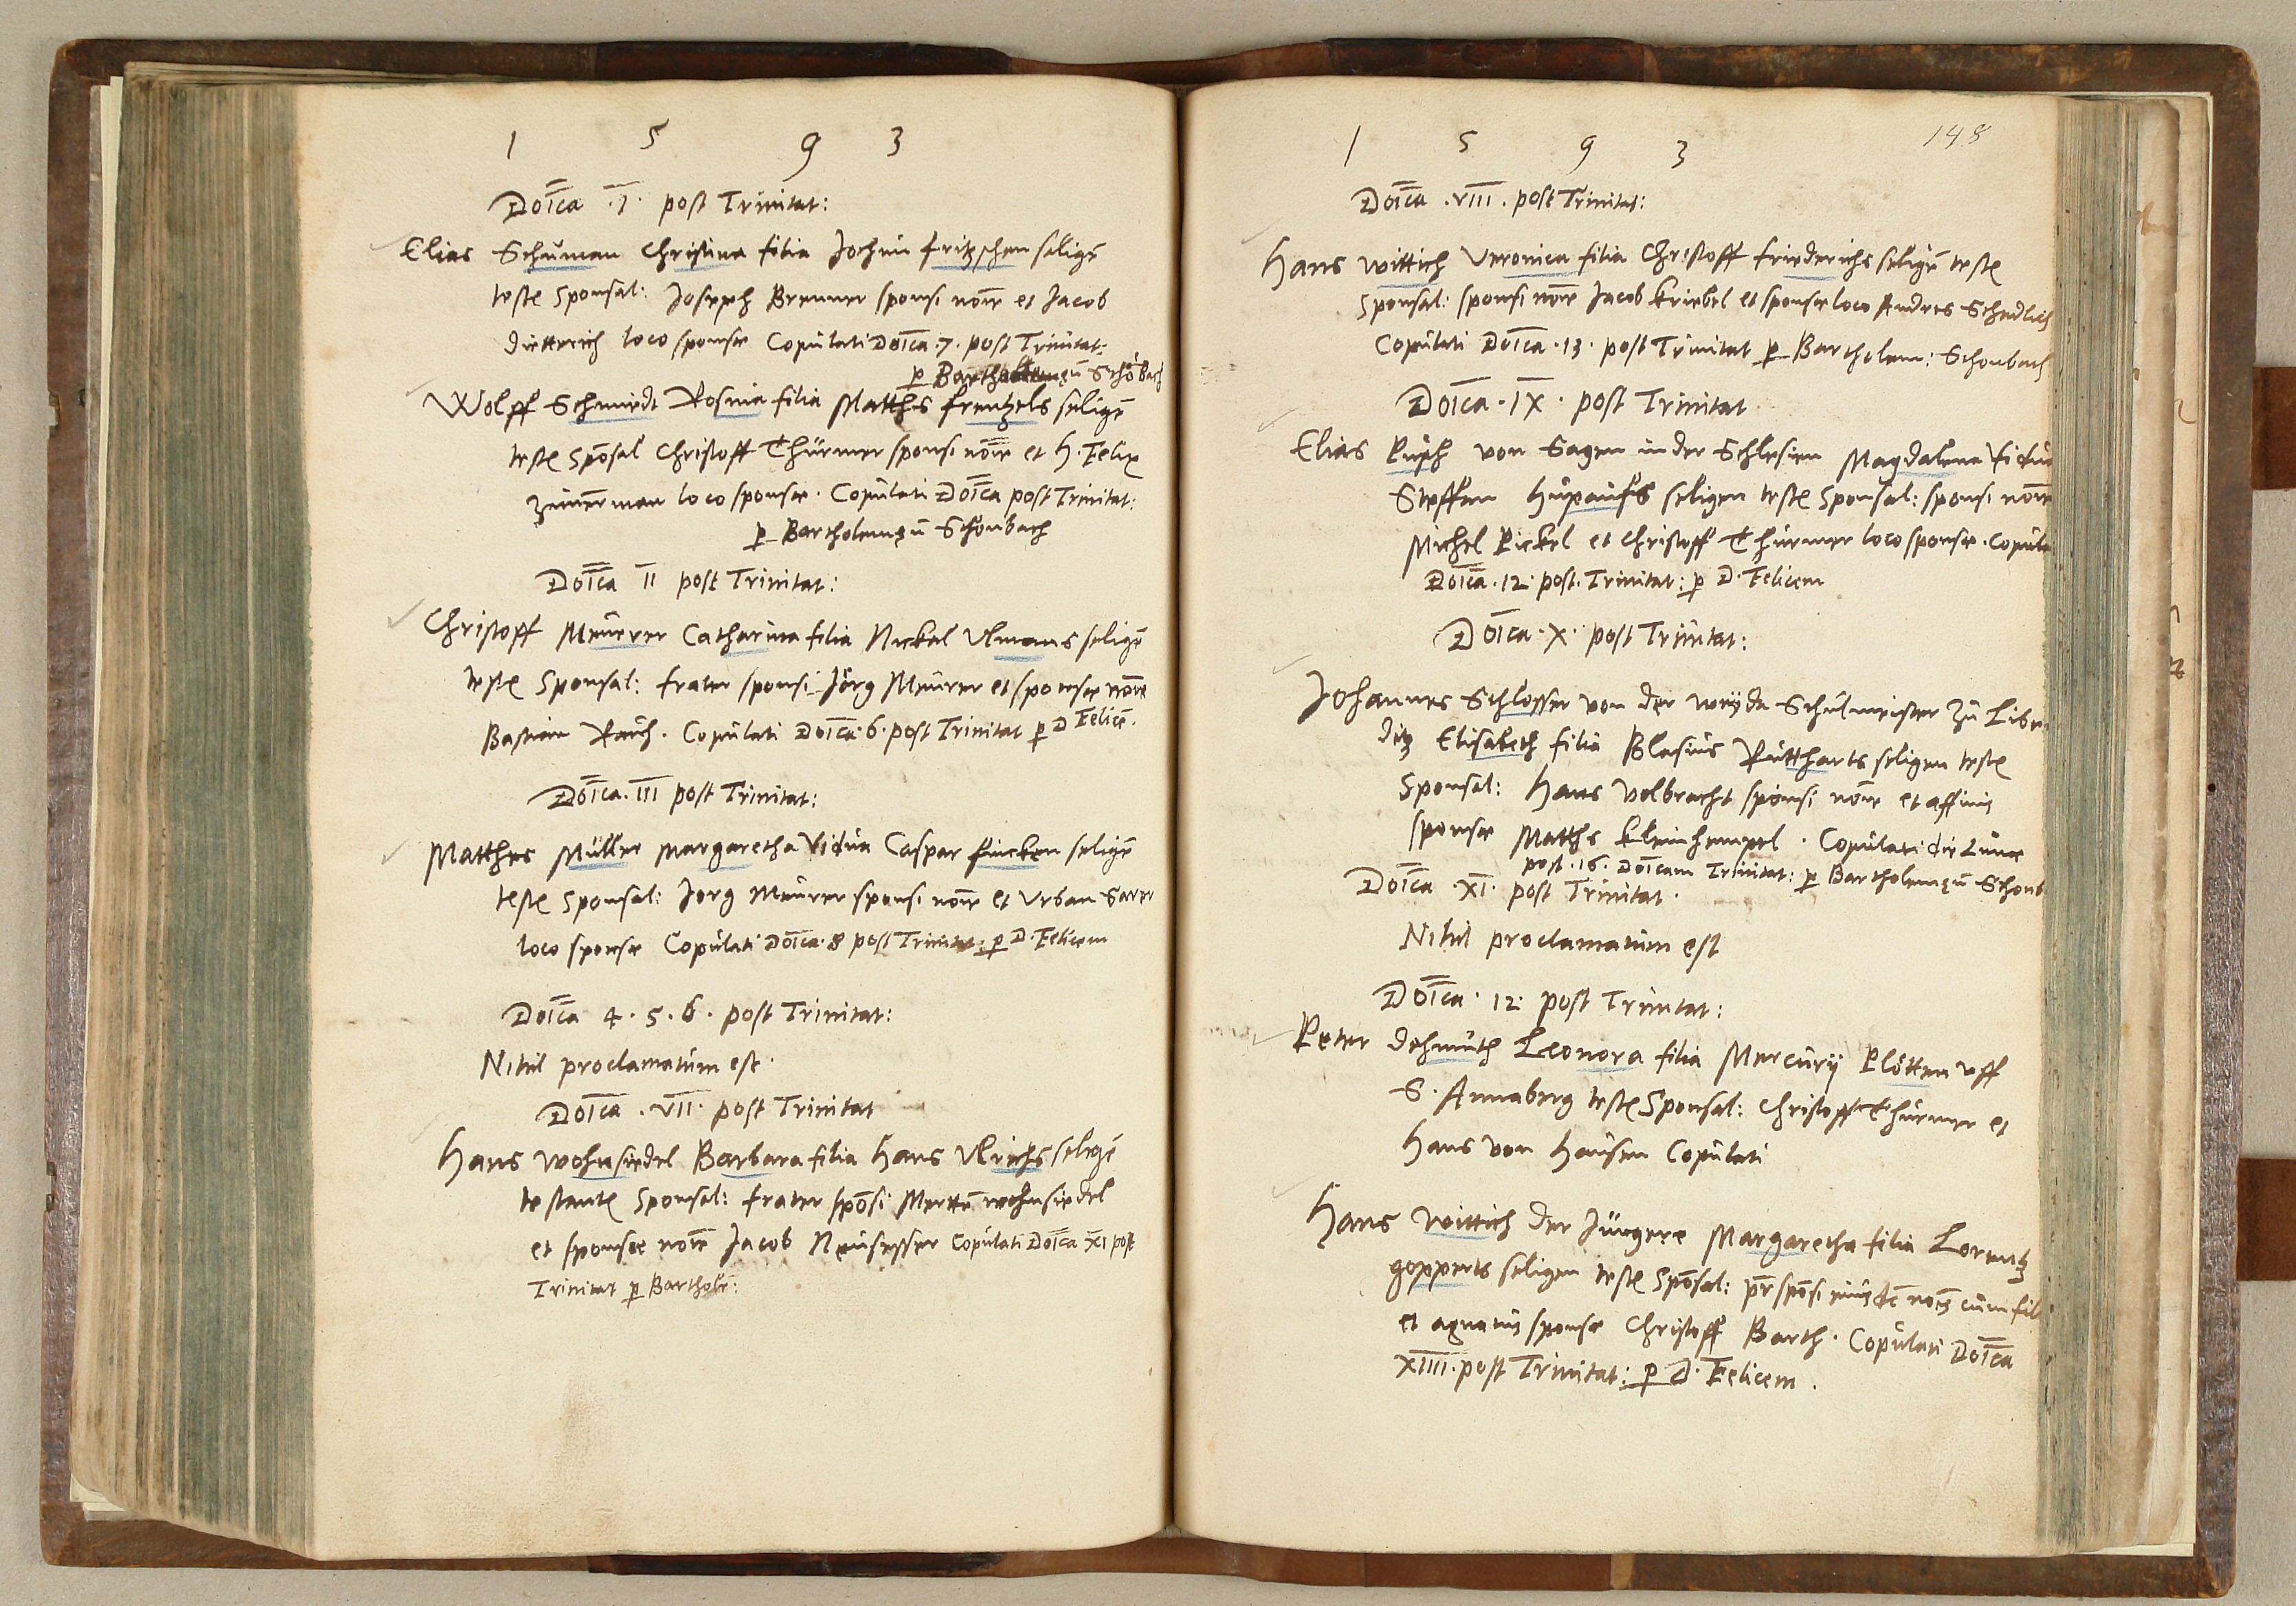 1 5 9 3
Doīca .I. post Trinitat:
Elias Schůman Christina filia Jochim fritzschen seligē
teste Sponsal: Joseph Brenner sponsi noīe et Jacob
Dietterich loco sponsæ Copulati Doīca .7. post Trinitat:
p Bartholemęū Schōbach
Wolff Schmiedt Rosina filia Matthes frentzels seligē
teste Spōsal Christoff Thürmer sponsi noīe et H. Felix
Zimērman loco sponsæ. Copulati Doīca post Trinitat:
p Bartholemęū Schönbach
Doīca II post Trinitat:
Christoff Meurer Catharina filia Nickel Vlmans seligē
teste Sponsal: frater sponsi Jörg Meurer et sponsæ noīe
Bastian Rauh. Copulati Doīca .6. post Trinitat p D Felicē.
Doīca. III post Trinitat:
Matthes Müller Margaretha Vidua Caspar fincken seligē
teste Sponsal: Jorg Meurer sponsi noīe et Vrban Sarer
loco sponsæ Copulati Doīca .8 post Trinitat: p D. Felicem
Doīca 4. 5. 6. post Trinitat:
Nihil proclamatum est.
Doīca . VII. post Trinitat
Hans Wohnsiedel Barbara filia Hans Vlrichs seligē
testante Sponsal: frater spōsi Mertē wohnsiedel
et sponsæ noīe Jacob Neusesser Copulati Doīca XI post
Trinitat p Barthole:
1 5 9 3
148
Doīca . VIII . post Trinitat:
Hans Wittich Veronica filia Christoff friederichs seligē teste
Sponsal: sponsi noīe Jacob Kriebel et sponsæ loco Andres Schedlich
Copulati Doīca .13. post Trinitat p Bartholem: Schonbach
Doīca . IX . post Trinitat
Elias von Sagen in der Schlesien Magdalena Vidua
Steffan Hupaufs seligen teste Sponsal: sponsi noīe
Michel Pickel et Christoff Thürmer loco sponsæ. Copula
Doīca .12. post. Trinitat: p D. Felicem
Doīca . X . post Trinitat:
Johannes Schlosser von der weyda Schulmeister zu Libe
ditz Elisabeth filia Blasius Ruttharts seligen teste
Sponsal: Hans Volbracht sponsi noīe et affinis
sponsæ Matthes Kleinhempel . Copulati die Lunæ
post .16. Doīcam Trinitat: p Bartholemęū Schonb
Doīca . XI . post Trinitat.
Nihil proclamatum est
Doīca . 12. post Trinitat:
Peter Dehmuth Leonora filia Mercurij Plötten vff
S. Annaberg teste Sponsal: Christoff Thürmer et
Hans von Hausen Copulati
Hans Wittich der Jüngere Margaretha filia Lorentz
gopperts seligen teste Spōsal: pr̄ spōsi eiusdē noīs cum fil
et agnatus sponsæ Christoff Barth . Copulati Doīca
XIIII. post Trinitat: p D. Felicem .